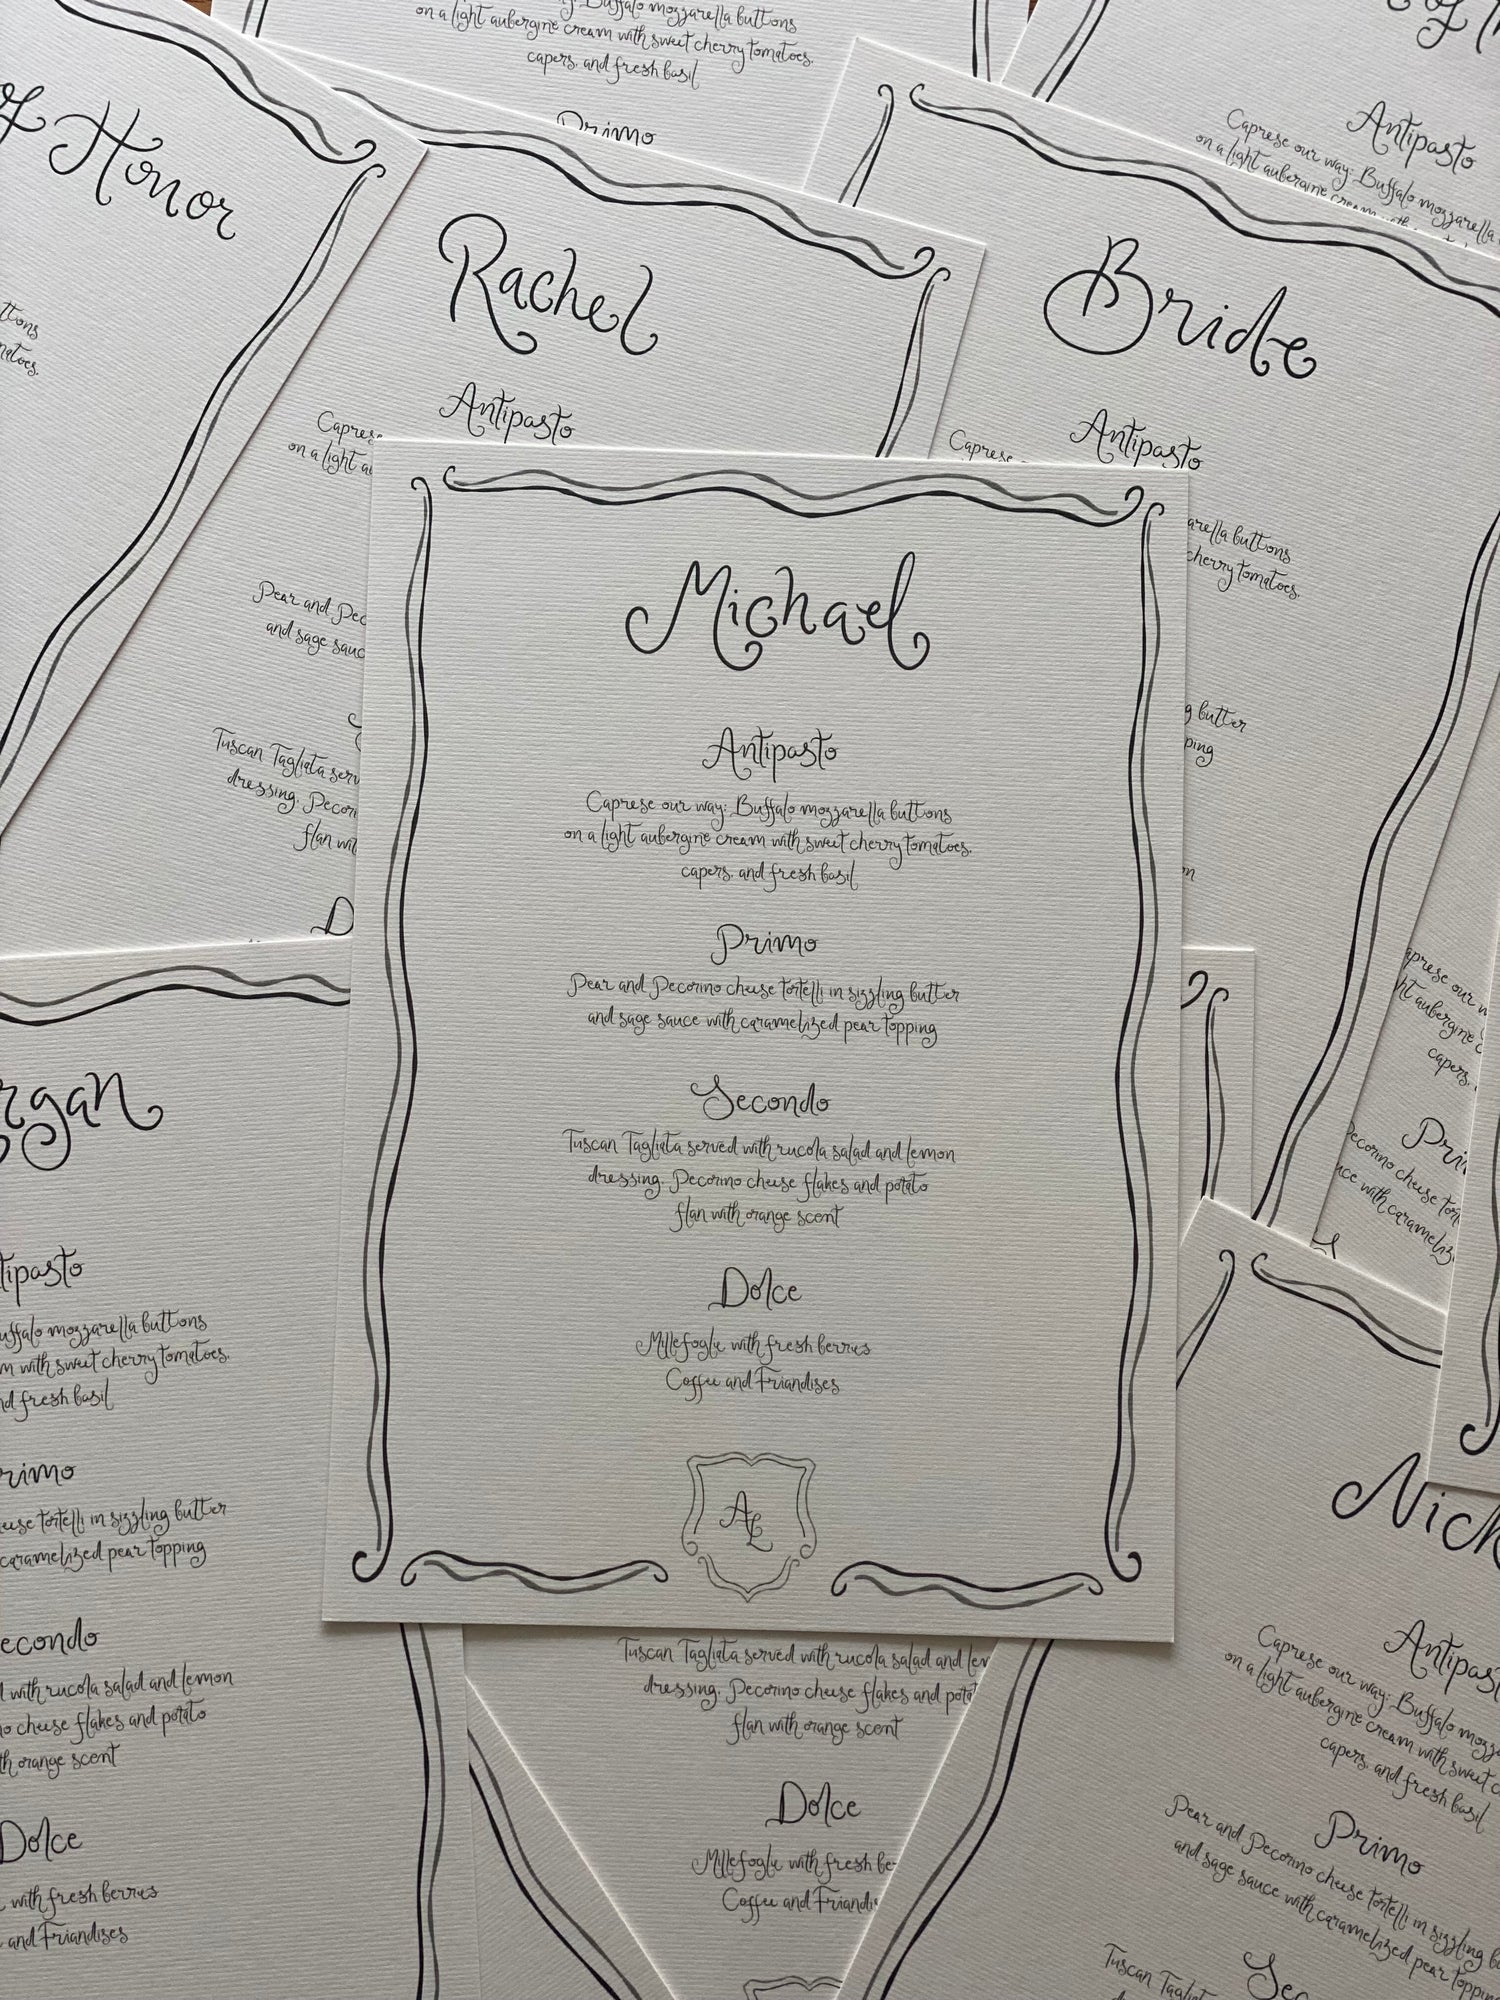 on a light aubergine cream with sweet cherry tomatoes,
capers, and fresh basil
Primo
Antipasto
Caprese our way: Buffalo mozzarella
on a light aubergine cream with
of Honor
ttons
matoes,
Rachel
Antipasto
Caprese
on a light au
Pear and Pec
and sage sauc
Tuscan Tagliata serv
dressing, Pecori
flan wit
D
Bride
Antipasto
Caprese
arella buttons
cherry tomatoes,
g butter
pping
Michael
Antipasto
Caprese our way: Buffalo mozzarella buttons
on a light aubergine cream with sweet cherry tomatoes,
capers, and fresh basil
Primo
Pear and Pecorino cheese tortelli in sizzling butter
and sage sauce with caramelized pear topping
Secondo
Tuscan Tagliata served with rucola salad and lemon
dressing, Pecorino cheese flakes and potato
flan with orange scent
Dolce
Millefoglie with fresh berries
Coffee and Friandises
AL
rgan
tipasto
uffalo mozzarella buttons
m with sweet cherry tomatoes,
nd fresh basil
rimo
eese tortelli in sizzling butter
caramelized pear topping
econdo
d with rucola salad and lemon
no cheese flakes and potato
th orange scent
Dolce
with fresh berries
and Friandises
Tuscan Tagliata served with rucola salad and lem
dressing, Pecorino cheese flakes and potat
flan with orange scent
Dolce
Millefoglie with fresh be
Coffee and Friandis
aprese our w
ht aubergine c
capers,
Pri
Pecorino cheese tort
uce with carameliz
Nick
Antipast
Caprese our way: Buffalo mozz
on a light aubergine cream with sweet c
capers, and fresh basil
Primo
Pear and Pecorino cheese tortelli in sizzling
and sage sauce with caramelized pear topp
Sec
Tuscan Tagliat
dressing